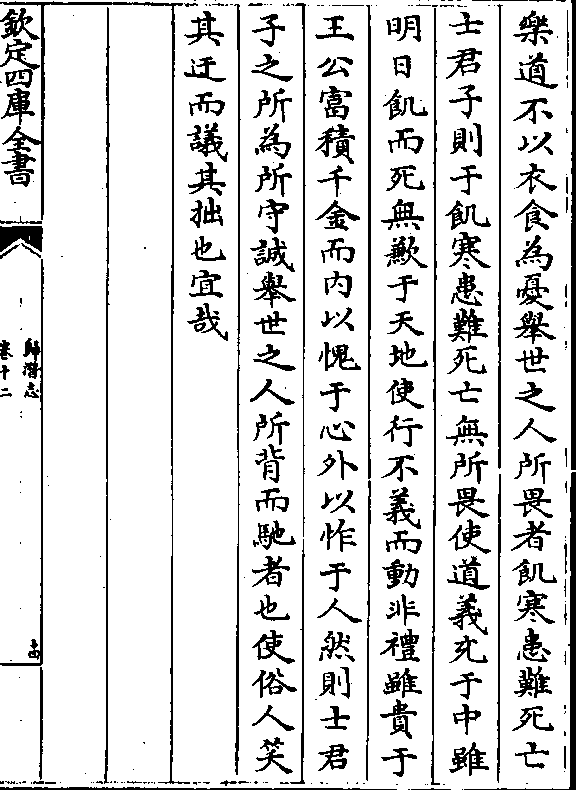 樂道不以衣食為憂舉世之人所畏者飢寒患難死亡
士君子則于飢寒患難死亡無所畏使道義充于中雖
明日飢而死無歉于天地使行不義而動非禮雖貴于
王公富積千金而内以愧于心外以怍于人然則士君
子之所為所守誠舉世之人所背而馳者也使俗人笑
其迂而議其拙也宜哉
欽定四庫全書
歸潛志
卷十二
十四